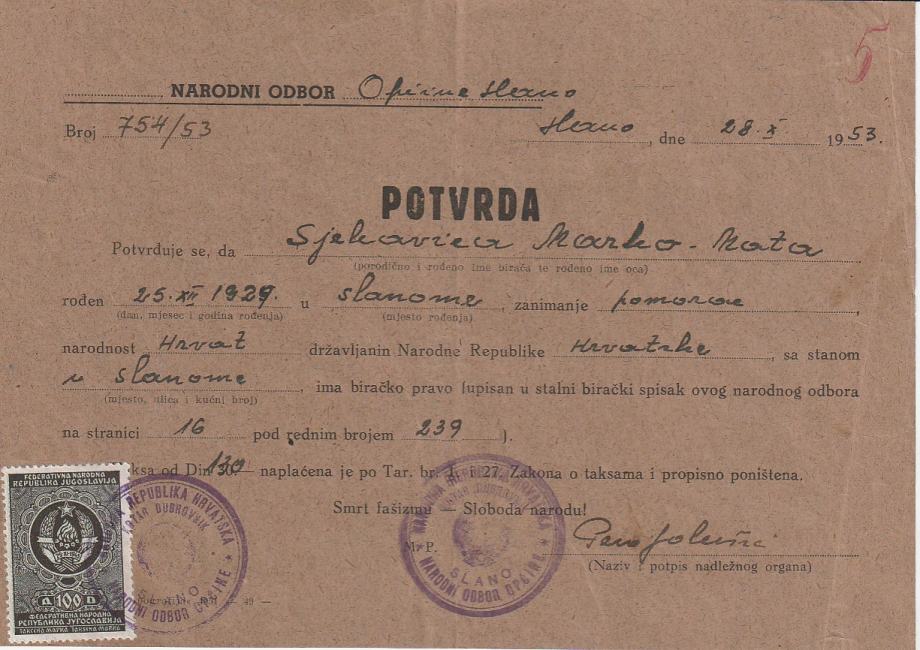 5
NARODNI ODBOR Općine Slano
Broj 754/53
Slano, dne 28.X 1953.
POTVRDA
Potvrđuje se, da Sjekavica Marko - Mata
(porodično i rođeno ime birača te rođeno ime oca)
rođen 25.XII 1929. u Slanome, zanimanje pomorac,
(dan, mjesec i godina rođenja) (mjesto rođenja)
narodnost Hrvat državljanin Narodne Republike Hrvatske, sa stanom
u Slanome, ima biračko pravo (upisan u stalni birački spisak ovog narodnog odbora
(mjesto, ulica i kućni broj)
na stranici 16 pod rednim brojem 239 ).
ksa od Din naplaćena je po Tar. br. 1. i 27. Zakona o taksama i propisno poništena.
Smrt fašizmu — Sloboda narodu!
M. P.
(Naziv i potpis nadležnog organa)
FEDERATIVNA NARODNA
REPUBLIKA JUGOSLAVIJA
Д 100 D
ФЕДЕРАТИВНА НАРОДНА
РЕПУБЛИКА ЈУГОСЛАВИЈА
ТАКСЕНА МАРКА TAKSENA MARKA
REPUBLIKA HRVATSKA
KOTAR DUBROVNIK
SLANO
NARODNI ODBOR OPĆINE
NARODNA REPUBLIKA HRVATSKA
KOTAR DUBROVNIK
SLANO
NARODNI ODBOR OPĆINE
— 49 —